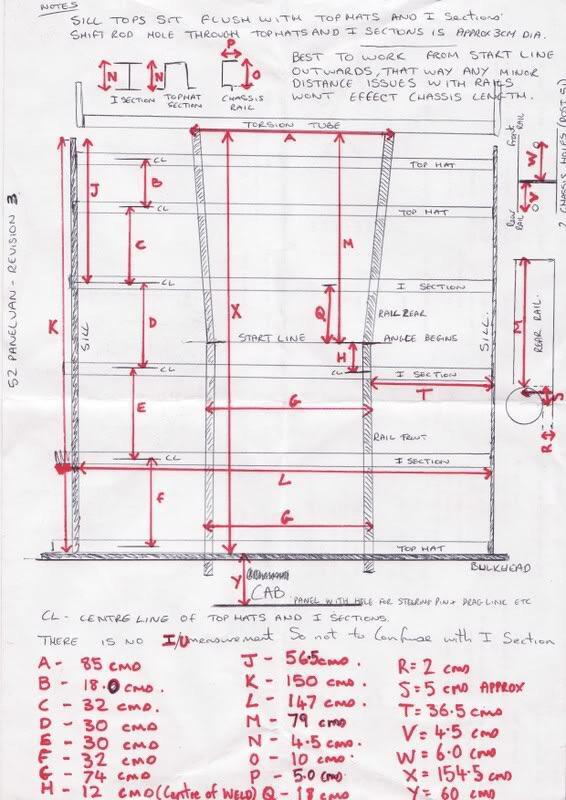 NOTES
SILL TOPS SIT FLUSH WITH TOPMATS AND I SECTIONS.
SHIFT ROD HOLE THROUGH TOPHATS AND I SECTIONS IS APPROX 3CM DIA.
BEST TO WORK FROM START LINE
OUTWARDS, THAT WAY ANY MINOR
DISTANCE ISSUES WITH RAILS
WONT EFFECT CHASSIS LENGTH.
N
I SECTION
N
TOPHAT
SECTION
P
O
CHASSIS
RAIL
TORSION TUBE
A
CL
TOP HAT
B
J
CL
TOP HAT
C
M
CL
I SECTION
K
D
X
Q
RAIL REAR
SILL
SILL
START LINE
ANGLE BEGINS
H
CL
CL
I SECTION
T
E
G
RAIL FRONT
CL
I SECTION
L
F
G
TOP HAT
BULKHEAD
Y
CAB
PANEL WITH HOLE FOR STEERING PIN + DRAG LINE ETC
52 PANELVAN - REVISION 3
FRONT RAIL
W
V
REAR RAIL
2 CHASSIS HOLES (POST 51)
M
REAR RAIL.
S
R
CL - CENTRE LINE OF TOP HATS AND I SECTIONS.
THERE IS NO I/U measurement So not to Confuse with I Section
A - 85 cms
B - 18.0 cms.
C - 32 cms.
D - 30 cms
E - 30 cms
F - 32 cms
G - 74 cms
H - 12 cms (Centre of WELD)
J - 56.5 cms.
K - 150 cms.
L - 147 cms.
M - 79 cms
N - 4.5 cms.
O - 10 cms.
P - 5.0 cms.
Q - 18 cms
R = 2 cms
S = 5 cms APPROX
T = 36.5 cms
V = 4.5 cms
W = 6.0 cms
X = 154.5 cms
Y = 60 cms